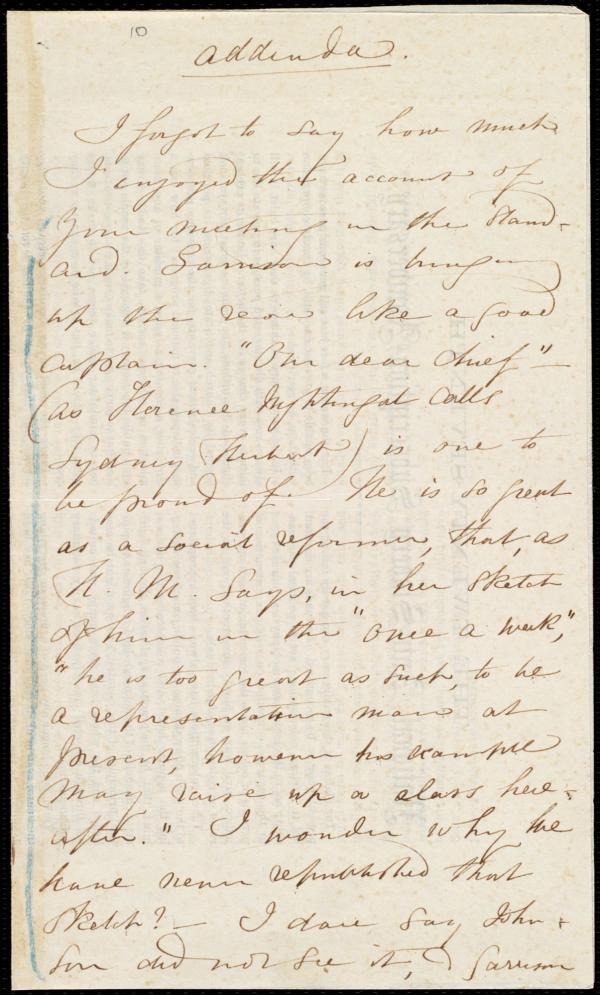 10
addenda.
I forgot to say how much
I enjoyed the account of
your meeting in the Stand-
ard. Garrison is bringing
up the rear like a good
captain. "Our dear chief" —
(as Florence Nightingal calls
Sydney Herbert) is one to
be proud of. He is so great
as a social reformer, that, as
H. M. says, in her sketch
of him in the "once a week,"
"he is too great as such, to be
a representative man at
present, however his example
may raise up a class here-
after." I wonder why we
have never republished that
sketch? — I dare say John-
son did not see it, & Garrison